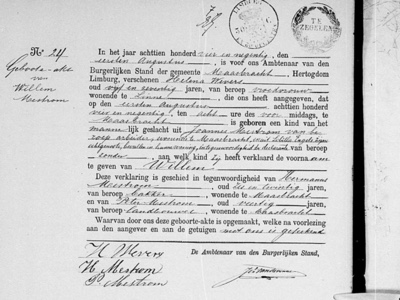 No 24
Geboorte-akte
van
Willem
Mestrom
TE
ZEGELEN
In het jaar achttien honderd vier en negentig, den
eersten Augustus, is voor ons Ambtenaar van den
Burgerlijken Stand der gemeente Maasbracht, Hertogdom
Limburg, verschenen Helena Wevers
oud vijf en zeventig jaren, van beroep vroedvrouw
wonende te Linne, die ons heeft aangegeven, dat
op den eersten Augustus achttien honderd
vier en negentig, ten acht ure des voor middags, te
Maasbracht is geboren een kind van het
manne lijk geslacht uit Joannes Mestrom van be
roep arbeider, wonende te Maasbracht, en
zonder, aan welk kind zij heeft verklaard de voornaam
te geven van Willem
Deze verklaring is geschied in tegenwoordigheid van Hermanus
Mestrom, oud zes en twintig jaren,
van beroep bakker, wonende te Maasbracht
en van Peter Mestrom oud veertig jaren,
van beroep landbouwer, wonende te Maasbracht
Waarvan door ons deze geboorte-akte is opgemaakt, welke na voorlezing
aan den aangever en de getuigen met ons is geteekend
De Ambtenaar van den Burgerlijken Stand,
H Wevers
H. Mestrom
P. Mestrom